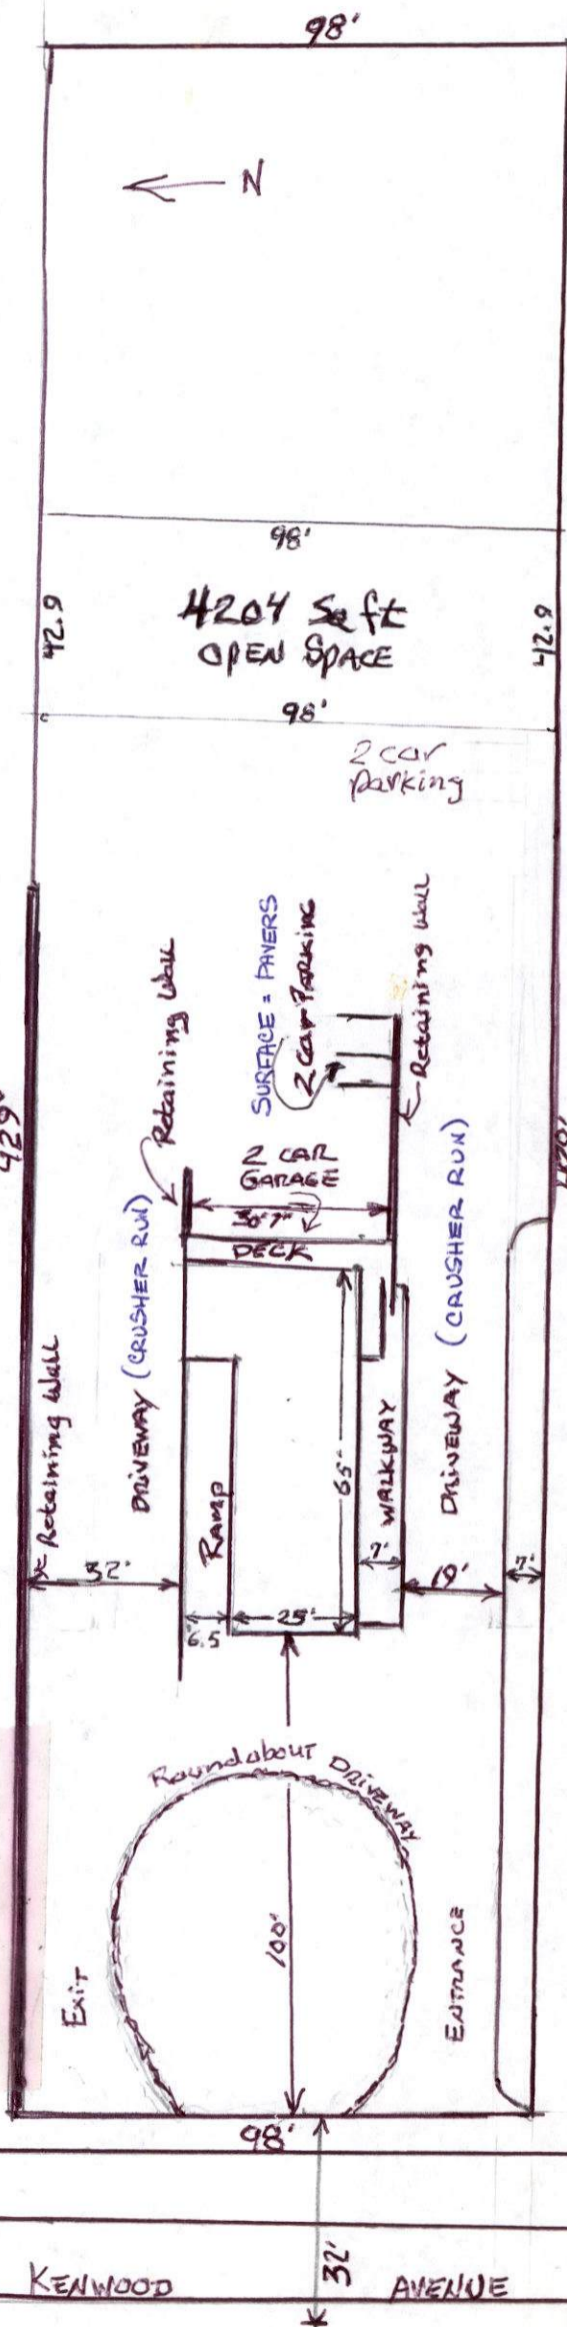 98'
N
98'
42.9
4204 Sq ft
OPEN SPACE
42.9
98'
2 car
parking
Retaining Wall
SURFACE = PAVERS
2 Car PARKING
Retaining Wall
429'
2 CAR
GARAGE
30'7"
DECK
DRIVEWAY (CRUSHER RUN)
DRIVEWAY (CRUSHER RUN)
Retaining Wall
65'
RAMP
WALKWAY
32'
6.5
25'
7'
19'
7'
Roundabout DRIVEWAY
100'
Exit
ENTRANCE
98'
32'
KENWOOD AVENUE